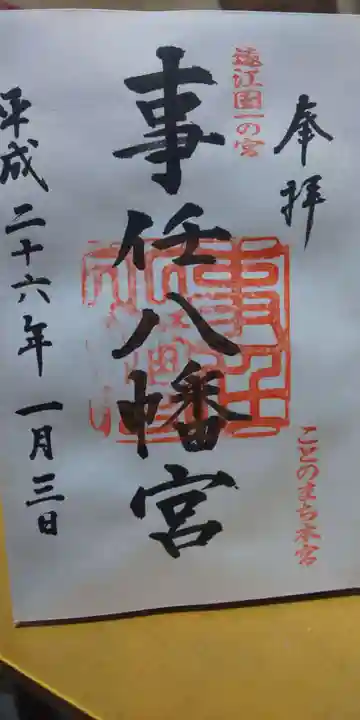 奉拝
遠江国一の宮
ことのまち本宮
事任八幡宮
平成二十六年一月三日